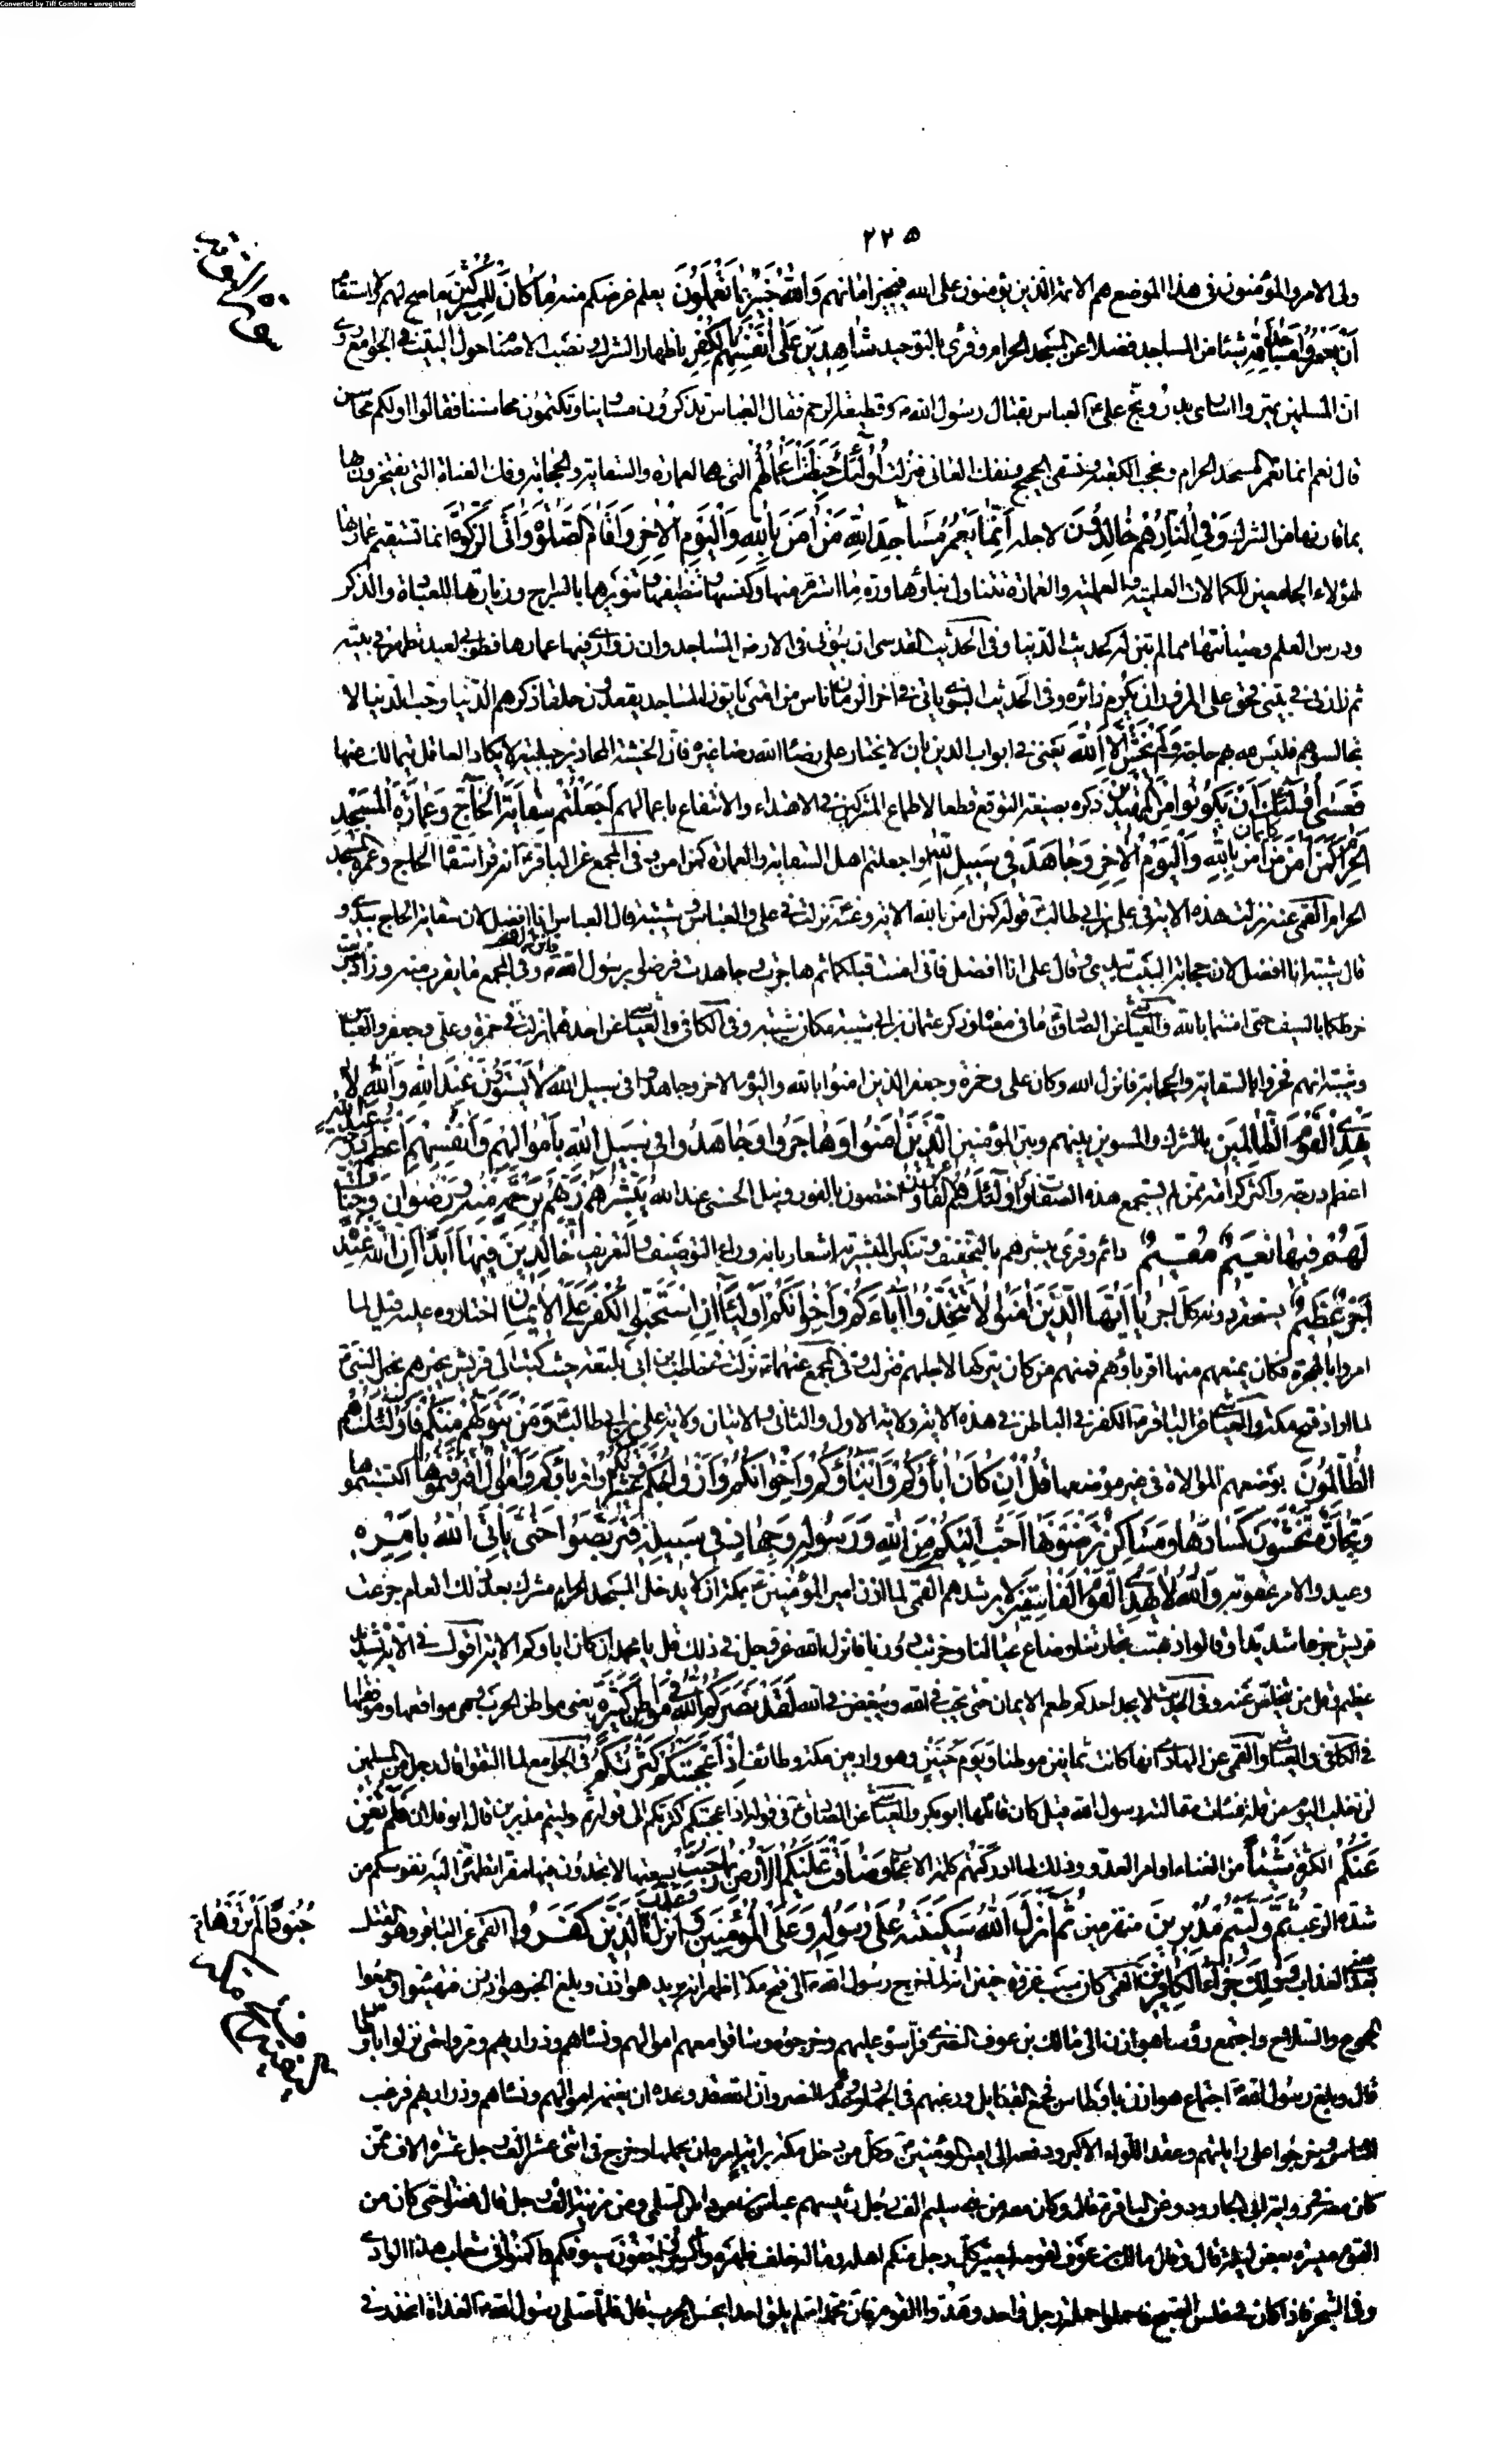 Converted by Tiff Combine - unregistered
٢٢٥
ولى الامر والمؤمنون فى هذا الموضع هم الائمة الذين يؤمنون على الله فيجيز امانهم وَاللهُ خَبِيرٌ بِمَا تَعْمَلُونَ يعلم غرضكم منه مَا كَانَ لِلْمُشْرِكِينَ ما صح لهم وما استقام
أَنْ يَعْمُرُوا مَسَاجِدَ اللهِ شيئا من المساجد فضلا عن المسجد الحرام وقرئ بالتوحيد شَاهِدِينَ عَلَى أَنْفُسِهِمْ بِالْكُفْرِ باظهار الشرك ونصب الاصنام حول البيت فى الجوامع روى
ان المسلمين عيّروا اسارى بدر ووبّخ علىّ العباس بقتال رسول الله وقطيعة الرحم فقال العباس تذكرون مساوينا وتكتمون محاسننا فقالوا اولكم محاسن
قال نعم انما نعمر المسجد الحرام ونحجب الكعبة ونسقى الحجيج ونفك العانى فنزلت أُولَئِكَ حَبِطَتْ أَعْمَالُهُمْ التى هى العمارة والسقاية والحجابة وفك العناة التى يفتخرون بها
بما قارنها من الشرك وَفِي النَّارِ هُمْ خَالِدُونَ لاجله إِنَّمَا يَعْمُرُ مَسَاجِدَ اللهِ مَنْ آمَنَ بِاللهِ وَالْيَوْمِ الْآخِرِ وَأَقَامَ الصَّلوٰةَ وَآتَى الزَّكوٰةَ انما تستقيم عمارتها
لهؤلاء الجامعين للكمالات العلمية والعملية والعمارة تتناول بناؤها ورم ما استرم منها وكنسها وتنظيفها وتنويرها بالسرج وزيارتها للعبادة والذكر
ودرس العلم وصيانتها مما لم تبن له كحديث الدنيا وفى الحديث القدسى ان بيوتى فى الارض المساجد وان زوارى فيها عمارها فطوبى لعبد تطهر فى بيته
ثم زارنى فى بيتى فحق على المزور ان يكرم زائره وفى الحديث النبوى ياتى فى اخر الزمان ناس من امتى ياتون المساجد يقعدون حلقا ذكرهم الدنيا وحب الدنيا لا
تجالسوهم فليس لله بهم حاجة وَلَمْ يَخْشَ إِلَّا اللهَ يعنى فى ابواب الدين بان لا يختار على رضا الله رضا غيره فان الخشية عن المحاذير جبلية لا يكاد العاقل يتمالك عنها
فَعَسَى أُولَئِكَ أَنْ يَكُونُوا مِنَ الْمُهْتَدِينَ ذكره بصيغة التوقع قطعا لاطماع المشركين فى الاهتداء والانتفاع باعمالهم أَجَعَلْتُمْ سِقَايَةَ الْحَاجِّ وَعِمَارَةَ الْمَسْجِدِ
الْحَرَامِ كَمَنْ آمَنَ بِاللهِ وَالْيَوْمِ الْآخِرِ وَجَاهَدَ فِي سَبِيلِ اللهِ اجعلتم اهل السقاية والعمارة كمن امن فى المجمع عن الباقر انه قرأ سقاة الحاج وعمرة المسجد
الحرام القمى عنه نزلت هذه الاية فى على بن ابى طالب قوله كمن امن بالله الاية وعنه نزلت فى على والعباس وشيبة قال العباس انا افضل لان سقاية الحاج بيدى و
قال شيبة انا افضل لان حجابة البيت بيدى وقال على انا افضل فانى امنت قبلكما ثم هاجرت وجاهدت فرضوا برسول الله وفى المجمع ما يقرب منه وزاد
خرطومكما بالسيف حتى امنتما بالله والعياشى عن الصادق ما فى معناه وذكر عثمان بن ابى شيبة مكان شيبة وفى الكافى والعياشى عن احدهما نزلت فى حمزة وعلى وجعفر والعباس
وشيبة انهم فخروا بالسقاية والحجابة فانزل الله وكان على وحمزة وجعفر الذين امنوا بالله واليوم الاخر وجاهدوا فى سبيل الله لَا يَسْتَوُونَ عِنْدَ اللهِ وَاللهُ لَا
يَهْدِي الْقَوْمَ الظَّالِمِينَ بالشرك والمسوين بينهم وبين المؤمنين الَّذِينَ آمَنُوا وَهَاجَرُوا وَجَاهَدُوا فِي سَبِيلِ اللهِ بِأَمْوَالِهِمْ وَأَنْفُسِهِمْ أَعْظَمُ دَرَجَةً عِنْدَ اللهِ
اعظم درجة واكثر كرامة ممن لم يستجمع هذه الصفات وَأُولَئِكَ هُمُ الْفَائِزُونَ المختصون بالفوز ونيل الحسنى عند الله يُبَشِّرُهُمْ رَبُّهُمْ بِرَحْمَةٍ مِنْهُ وَرِضْوَانٍ وَجَنَّاتٍ
لَهُمْ فِيهَا نَعِيمٌ مُقِيمٌ دائم وقرئ يبشرهم بالتخفيف وتنكير المبشر به اشعار بانه وراء التوصيف والتعريف خَالِدِينَ فِيهَا أَبَدًا إِنَّ اللهَ عِنْدَهُ
أَجْرٌ عَظِيمٌ يستحقر دونه كل اجر يَا أَيُّهَا الَّذِينَ آمَنُوا لَا تَتَّخِذُوا آبَاءَكُمْ وَإِخْوَانَكُمْ أَوْلِيَاءَ إِنِ اسْتَحَبُّوا الْكُفْرَ عَلَى الْإِيمَانِ اختاروه عليه قيل لما
امروا بالهجرة فكان يمنعهم منها اقرباؤهم فمنهم من كان يتركها لاجلهم فنزلت وفى المجمع عنهما نزلت فى حاطب بن ابى بلتعة حيث كتب الى قريش يخبرهم بخبر النبى
لما اراد فتح مكة والعياشى عن الباقر الكفر فى الباطن فى هذه الاية ولاية الاول والثانى والايمان ولاية على بن ابى طالب وَمَنْ يَتَوَلَّهُمْ مِنْكُمْ فَأُولَئِكَ هُمُ
الظَّالِمُونَ بوضعهم الموالاة فى غير موضعها قُلْ إِنْ كَانَ آبَاؤُكُمْ وَأَبْنَاؤُكُمْ وَإِخْوَانُكُمْ وَأَزْوَاجُكُمْ وَعَشِيرَتُكُمْ واقرباؤكم وَأَمْوَالٌ اقْتَرَفْتُمُوهَا اكتسبتموها
وَتِجَارَةٌ تَخْشَوْنَ كَسَادَهَا وَمَسَاكِنُ تَرْضَوْنَهَا أَحَبَّ إِلَيْكُمْ مِنَ اللهِ وَرَسُولِهِ وَجِهَادٍ فِي سَبِيلِهِ فَتَرَبَّصُوا حَتَّى يَأْتِيَ اللهُ بِأَمْرِهِ
وعيد والامر عقوبة وَاللهُ لَا يَهْدِي الْقَوْمَ الْفَاسِقِينَ لا يرشدهم القمى لما اذن امير المؤمنين بمكة ان لا يدخل المسجد الحرام مشرك بعد ذلك العام جزعت
قريش جزعا شديدا وقالوا ذهبت تجارتنا وضاع عيالنا وخربت دورنا فانزل الله عز وجل فى ذلك قل يا محمد ان كان اباؤكم الاية اقول فى الاية تشديد
عظيم وقل من يتخلص عنه وفى الحديث لا يجد احدكم طعم الايمان حتى يحب فى الله ويبغض فى الله لَقَدْ نَصَرَكُمُ اللهُ فِي مَوَاطِنَ كَثِيرَةٍ يعنى مواطن الحرب وهى مواقعها ومواقفها
فى الكافى والعياشى والقمى عن الهادى انها كانت ثمانين موطنا وَيَوْمَ حُنَيْنٍ وهو واد بين مكة وطائف إِذْ أَعْجَبَتْكُمْ كَثْرَتُكُمْ فى الجوامع لما التقوا قال رجل من المسلمين
لن نغلب اليوم من قلة فساءت مقالته رسول الله قيل كان قائلها ابو بكر والعياشى عن الصادق فى قوله اذ اعجبتكم كثرتكم الى قوله ثم وليتم مدبرين قال ابو فلان فَلَمْ تُغْنِ
عَنْكُمْ الكثرة شَيْئًا من الغناء او امر العدو وذلك لما ادركتهم كلمة الاعجاب وَضَاقَتْ عَلَيْكُمُ الْأَرْضُ بِمَا رَحُبَتْ بسعتها لا تجدون فيها مقرا تطمئن اليه نفوسكم من
شدة الرعب ثُمَّ وَلَّيْتُمْ مُدْبِرِينَ منهزمين ثُمَّ أَنْزَلَ اللهُ سَكِينَتَهُ عَلَى رَسُولِهِ وَعَلَى الْمُؤْمِنِينَ وَأَنْزَلَ جُنُودًا لَمْ تَرَوْهَا وَعَذَّبَ الَّذِينَ كَفَرُوا القمى عن الباقر وهو القتل
العذاب وَذَلِكَ جَزَاءُ الْكَافِرِينَ القمى كان سبب غزوة حنين انه لما خرج رسول الله الى فتح مكة اظهر انه يريد هوازن وبلغ الخبر هوازن فتهيئوا وجمعوا
الجموع والسلاح واجتمع رؤساء هوازن الى مالك بن عوف النضرى فرأسوه عليهم وخرجوا وساقوا معهم اموالهم ونسائهم وذراريهم ومروا حتى نزلوا باوطاس
قال وبلغ رسول الله اجتماع هوازن باوطاس فجمع القبائل ورغبهم فى الجهاد ووعدهم النصر وان الله قد وعده ان يغنمه اموالهم ونسائهم وذراريهم فرغب
الناس وخرجوا على راياتهم وعقد اللواء الاكبر ودفعه الى امير المؤمنين وكل من دخل مكة براية امره ان يحملها وخرج فى اثنى عشر الف رجل عشرة الاف ممن
كان معه وفى رواية ابى الجارود عن الباقر قال وكان معه من بنى سليم الف رجل رئيسهم عباس بن مرداس السلمى ومن مزينة الف رجل قال فمضوا حتى كان من
القوم مسيرة بعض ليلة قال وقال مالك بن عوف لقومه ليصير كل رجل منكم اهله وماله خلف ظهره واكسروا جفون سيوفكم واكمنوا فى شعاب هذا الوادى
وفى الشجر فاذا كان فى غلس الصبح فاحملوا حملة رجل واحد وهدوا القوم فان محمدا لم يلق احدا يحسن الحرب قال فلما صلى رسول الله الغداة انحدر فى
جُنُودًا لَمْ تَرَوْهَا